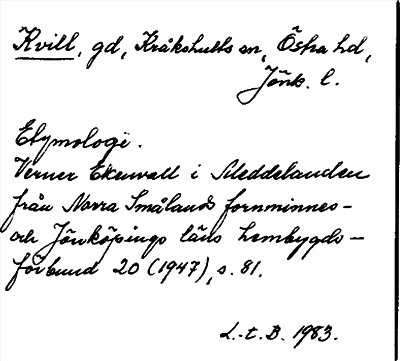 Kvill, gd, Kråkshults sn, Östra hd,
Jönk. l.
Etymologi.
Verner Ekenvall i Meddelanden
från Norra Smålands fornminnes-
och Jönköpings läns hembygds-
förbund 20 (1947), s. 81.
L.-t. B. 1983.